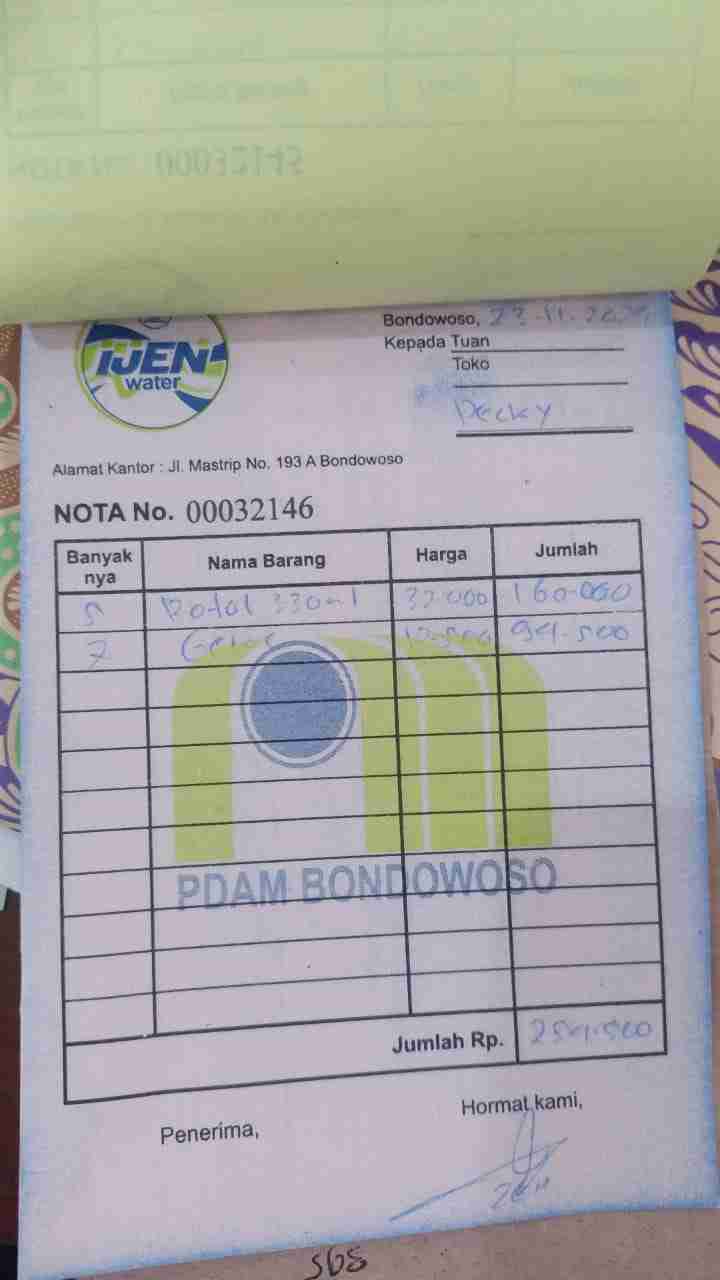 00032145
IJEN
water
Bondowoso, 23.11.
Kepada Tuan
Toko
Decky
Alamat Kantor : Jl. Mastrip No. 193 A Bondowoso
NOTA No. 00032146
Banyak nya Nama Barang Harga Jumlah
5 Botol 330ml 32.000 160.000
7 Gelas 94.500
PDAM BONDOWOSO
Jumlah Rp. 254.500
Penerima,
Hormat kami,
S6S